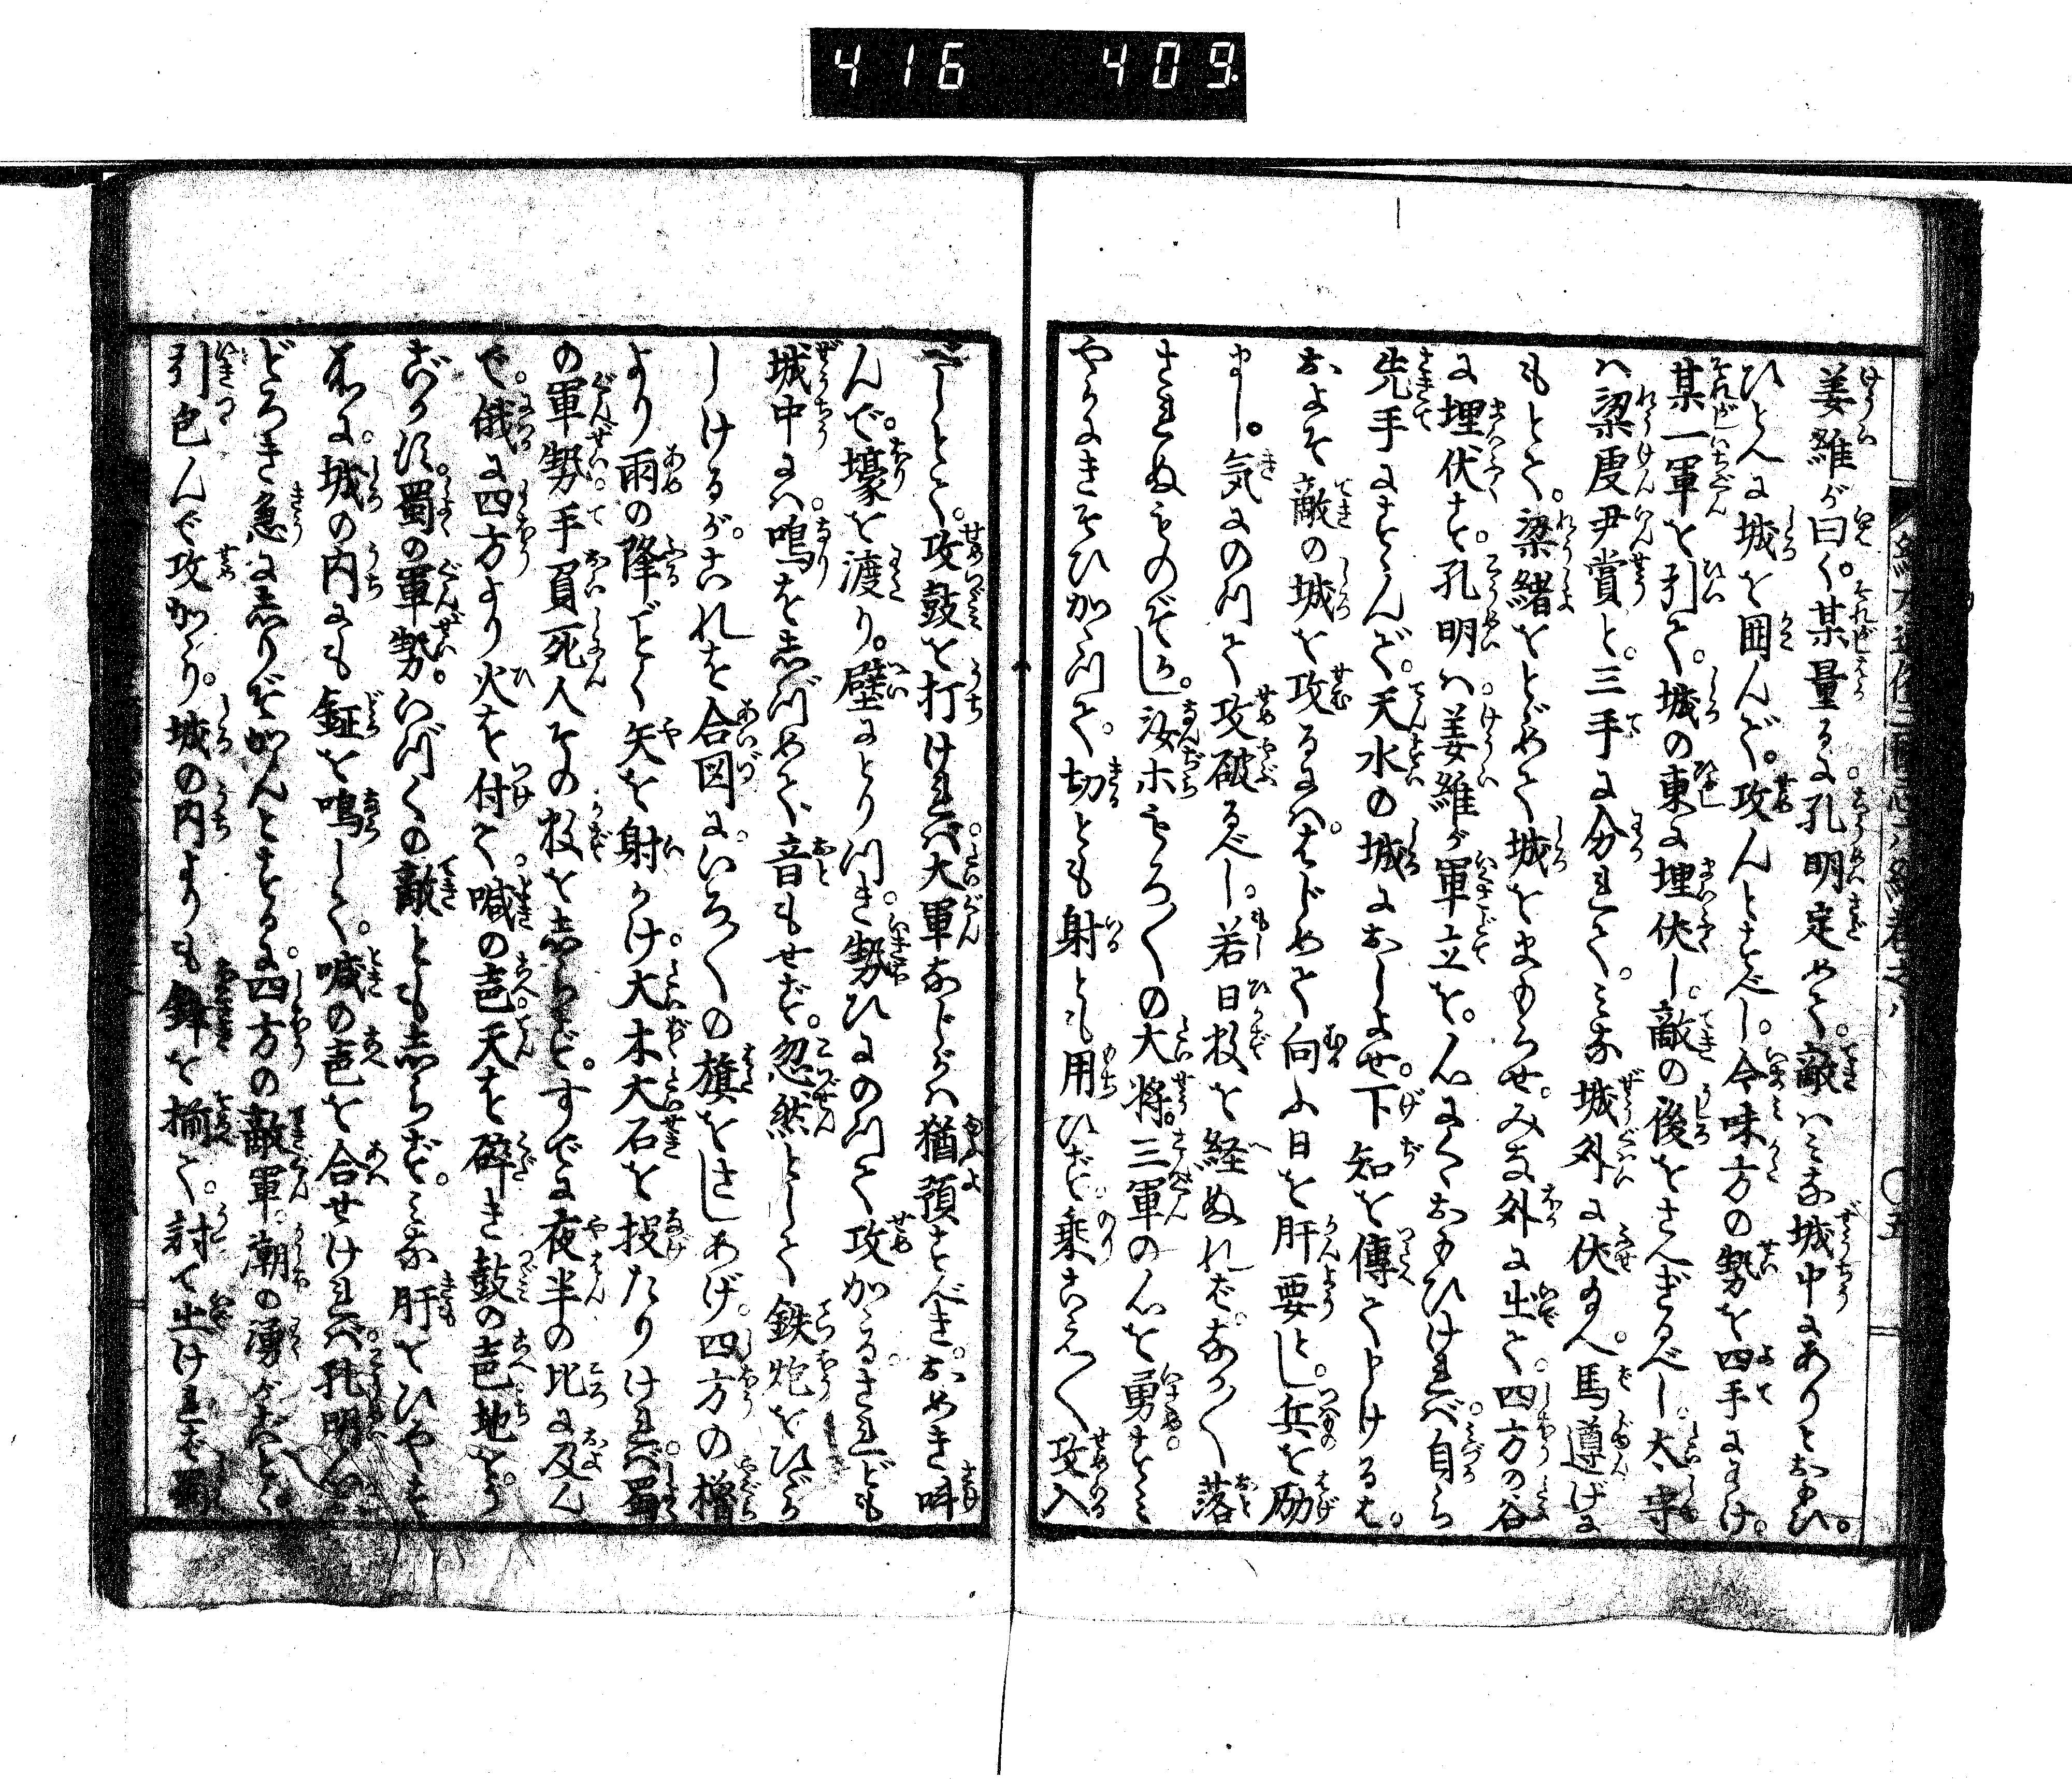 416 409.
姜維が曰く。某量るに。孔明定めて。敵はみな城中にありとおもひ。
ひとへに城を囲んで。攻んとすべし。今味方の勢を四手にわけ。
某一軍を引て。城の東に埋伏し。敵の後をさへぎるべし。太守
は梁虔尹賞と。三手に分れて。みな城外に伏玉へ。馬遵げに
もとて。梁緒をとゞめて城をまもらせ。みな外に出て。四方の谷
に埋伏す。孔明は。姜維が軍立を。心にくゝおもひければ。自ら
先手にすゝんで。天水の城におしよせ。下知を傳て申けるは。
およそ敵の城を攻るには。はじめて向ふ日を肝要とし。兵を励
まし。気にのつて攻破るべし。若日数を経ぬれば。なか〳〵落
されぬものぞかし。汝等もろ〳〵の大将。三軍の心を勇すゝみ
やかにきそひかゝつて。切とも射とも用ひず。乗こえ〳〵攻入
べしとて。攻鼓を打ければ。大軍なじかは猶預すべき。おめき叫
んで。壕を渡り。壁にとりつき。勢ひにのつて攻かゝる。されども
城中には。鳴をしづめて。音もせず。忽然として鉄炮をひゞか
しけるが。これを合図に。いろ〳〵の旗をさしあげ。四方の櫓
より雨の降ごとく矢を射かけ。大木大石を投たりければ。蜀
の軍勢。手負死人その数をしらず。すでに夜半の比に及ん
で。俄に四方より火を付て。喊の声。天を碎き鼓の声。地をう
ごかす。蜀の軍勢。いづくの敵ともしらず。みな肝をひやす
所に。城の内にも鉦を鳴して。喊の声を合せければ。孔明
どろき急にしりぞかんとするに。四方の敵軍。潮の湧がごとく
引包んで攻かゝり。城の内よりも鉾を揃て。討て出ければ蜀